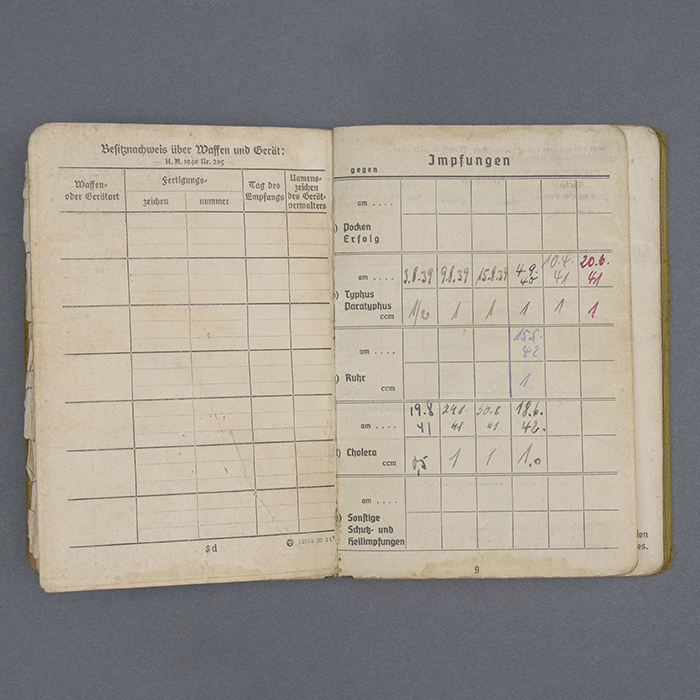 Besitznachweis über Waffen und Gerät:
— H. M. 1940 Nr. 205 —
Waffen-
oder Gerätart
Fertigungs-
zeichen
nummer
Tag des
Empfangs
Namens-
zeichen
des Gerät-
verwalters
8 d
Impfungen
gegen
am . . . .
) Pocken
Erfolg
am . . . . 3.8.39 9.8.39 15.8.39 4.9. 40 10.4. 41 20.6. 41
) Typhus
Paratyphus
ccm 1/2 1 1 1 1 1
am . . . . 15.5. 42
) Ruhr 1
ccm
19.8 24.8 30.8 18.6.
am . . . . 41 41 41 42.
) Cholera
ccm 0,5 1 1 1,0
am . . . .
) Sonstige
Schutz- und
Heilimpfungen
9
den
es.